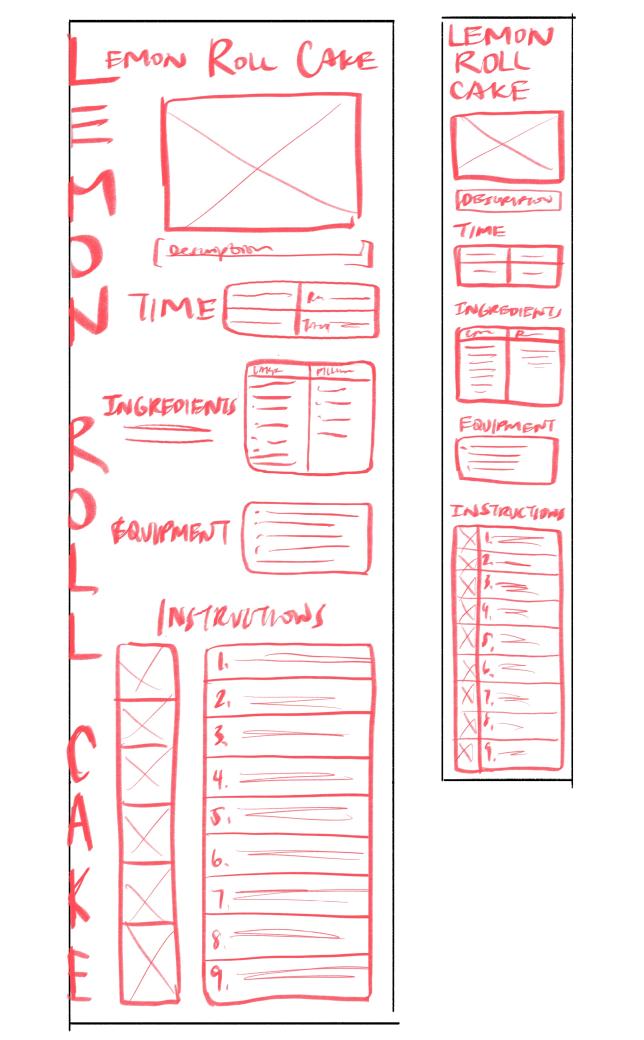 LEMON ROLL CAKE
LEMON ROLL CAKE
Description
TIME
INGREDIENTS
EQUIPMENT
INSTRUCTIONS
1.
2.
3.
4.
5.
6.
7.
8.
9.
LEMON
ROLL
CAKE
DESCRIPTION
TIME
INGREDIENTS
EQUIPMENT
INSTRUCTIONS
1.
2.
3.
4.
5.
6.
7.
8.
9.